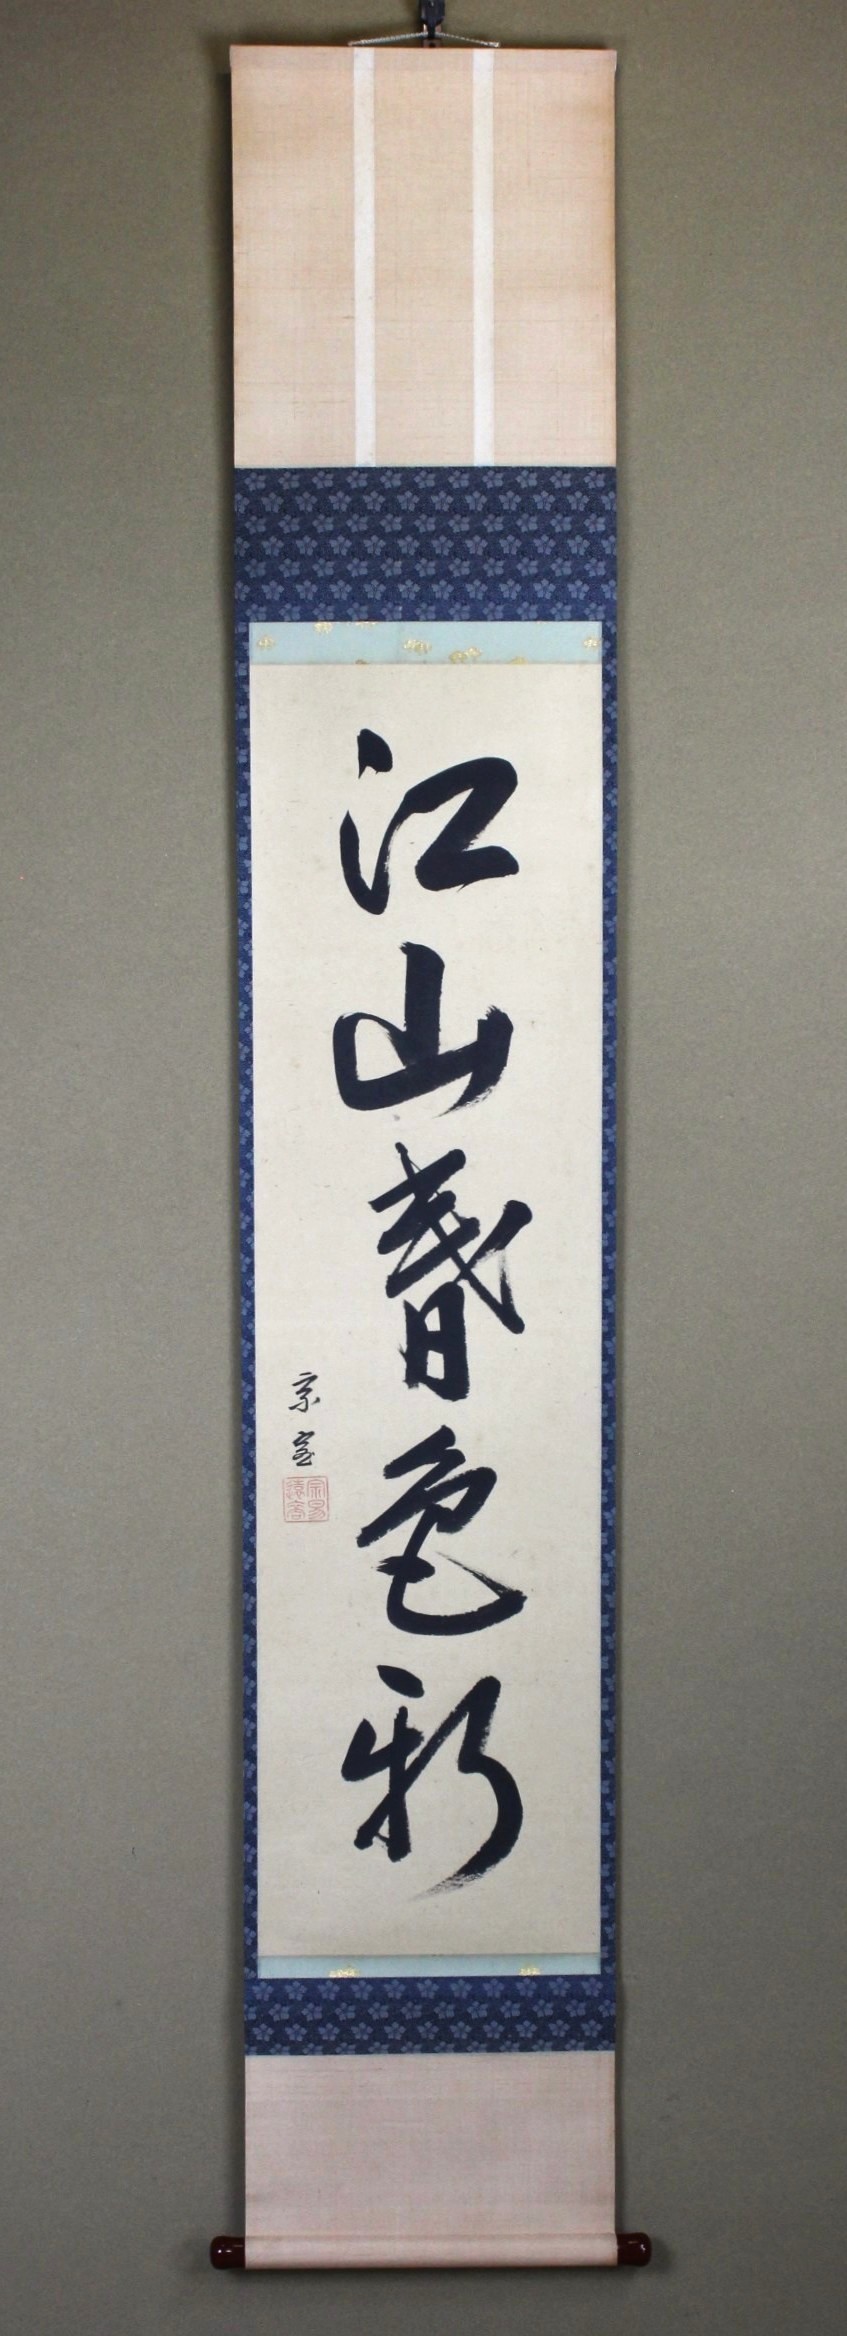 江山春色新
宗室